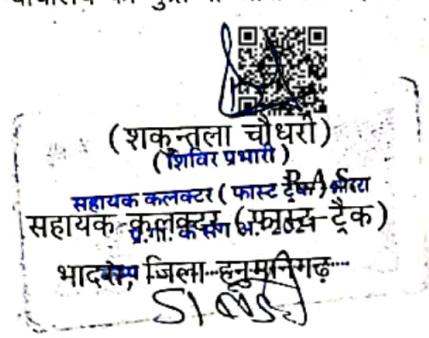 (शकुन्तला चौधरी)
(शिविर प्रभारी)
R.A.S.
सहायक कलक्टर (फास्ट ट्रैक) भादरा
सहायक कलक्टर (फास्ट-ट्रैक)
के संग 2021
भादरा, जिला हनुमानगढ़